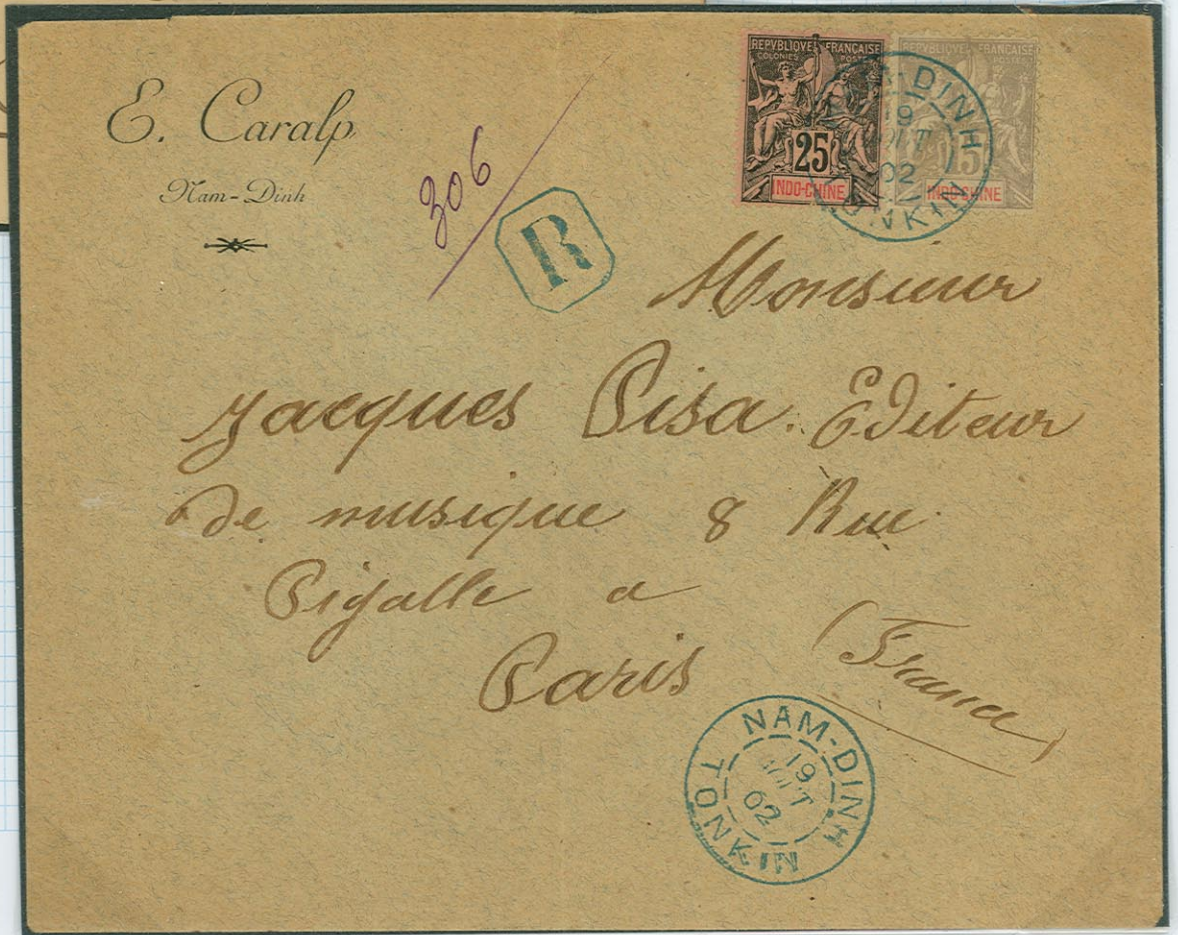 E. Caralp
Nam-Dinh
306
R
REPVBLIQVE FRANÇAISE
COLONIES POSTES
25
INDO-CHINE
REPVBLIQVE FRANÇAISE
15
INDO-CHINE
NAM-DINH
19
AOUT
02
TONKIN
Monsieur
Jacques Pisa. Editeur
de musique 8 Rue
Pigalle a
Paris (France)
NAM-DINH
19
AOUT
02
TONKIN